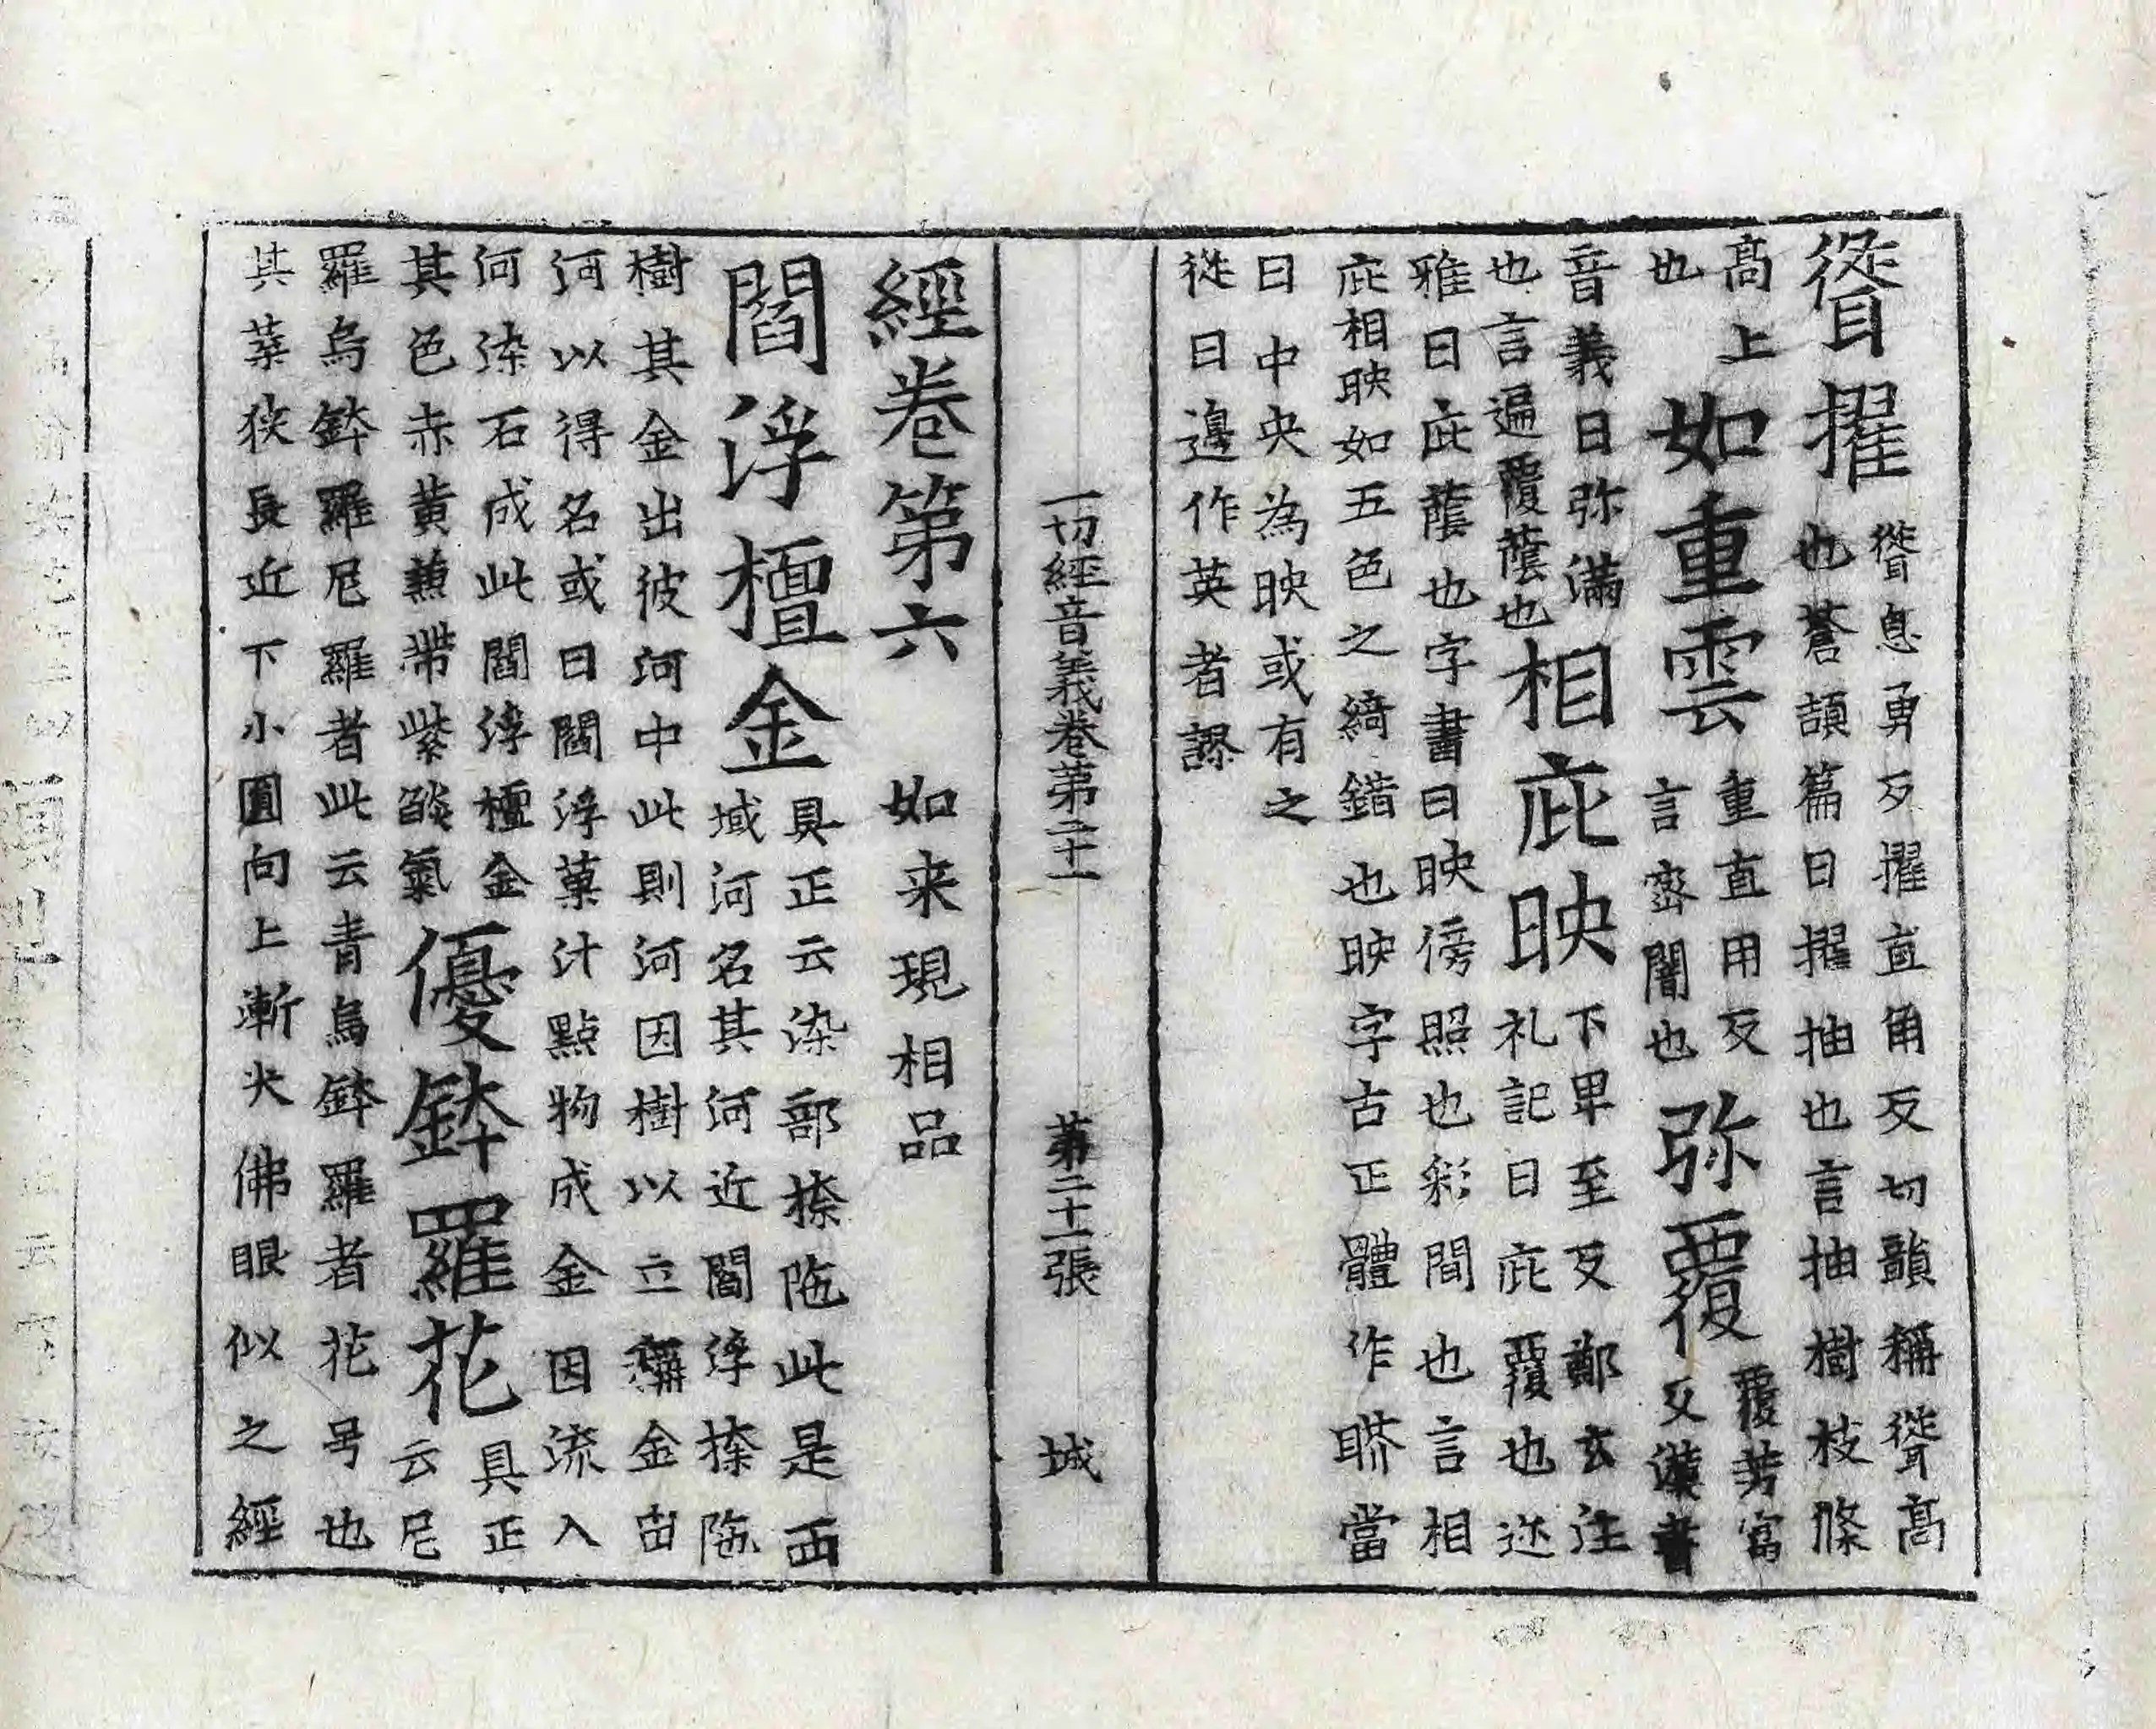 聳擢聳息勇反擢直角反切韻稱聳高
也蒼頡篇曰擢抽也言抽樹枝條
高上
也
如重雲重直用反
言密闇也
弥覆覆芳富
反漢書
音義曰弥滿
也言遍覆蔭也
相庇映下卑至反鄭玄注
礼記曰庇覆也迩
雅曰庇蔭也字書曰映傍照也彩間也言相
庇相映如五色之綺錯也映字古正體作當
日中央為映或有之
從日邊作英者謬
一切經音義卷第二十一 第二十一張 城
經卷第六 如来現相品
閻浮檀金具正云染部捺陁此是西
域河名其河近閻浮捺陁
樹其金出彼河中此則河因樹以立稱金由
河以得名或曰閻浮菓汁點物成金因流入
河染石成此閻浮檀金
其色赤黄兼帶紫燄氣
優鉢羅花具正
云尼
羅烏鉢羅尼羅者此云青烏鉢羅者花号也
其葉狹長近下小圓向上漸尖佛眼似之經